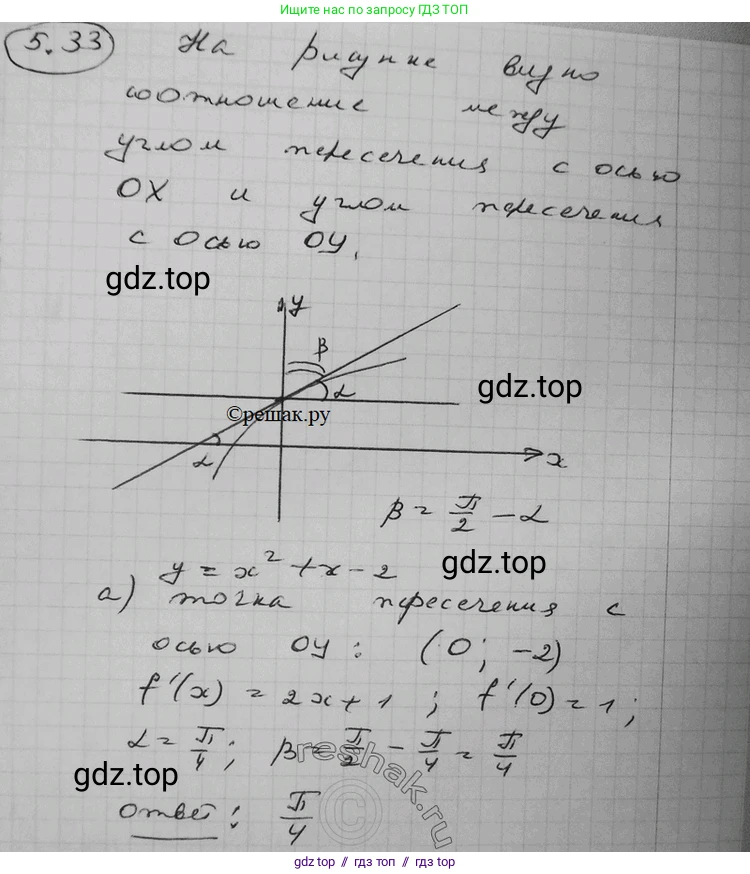 Ищите нас по запросу ГДЗ ТОП
5.33 На рисунке видно
соотношение между
углом пересечения с осью
OX и углом пересечения
с осью OY,
gdz.top
y
β
α
gdz.top
©решак.ру
x
α
β = π/2 - α
gdz.top
а) y = x² + x - 2
точка пересечения с
осью OY: (0; -2)
f'(x) = 2x + 1; f'(0) = 1;
α = π/4; β = π/2 - π/4 = π/4
gdz.top
reshak.ru
Ответ: π/4
gdz.top // гдз топ // gdz.top